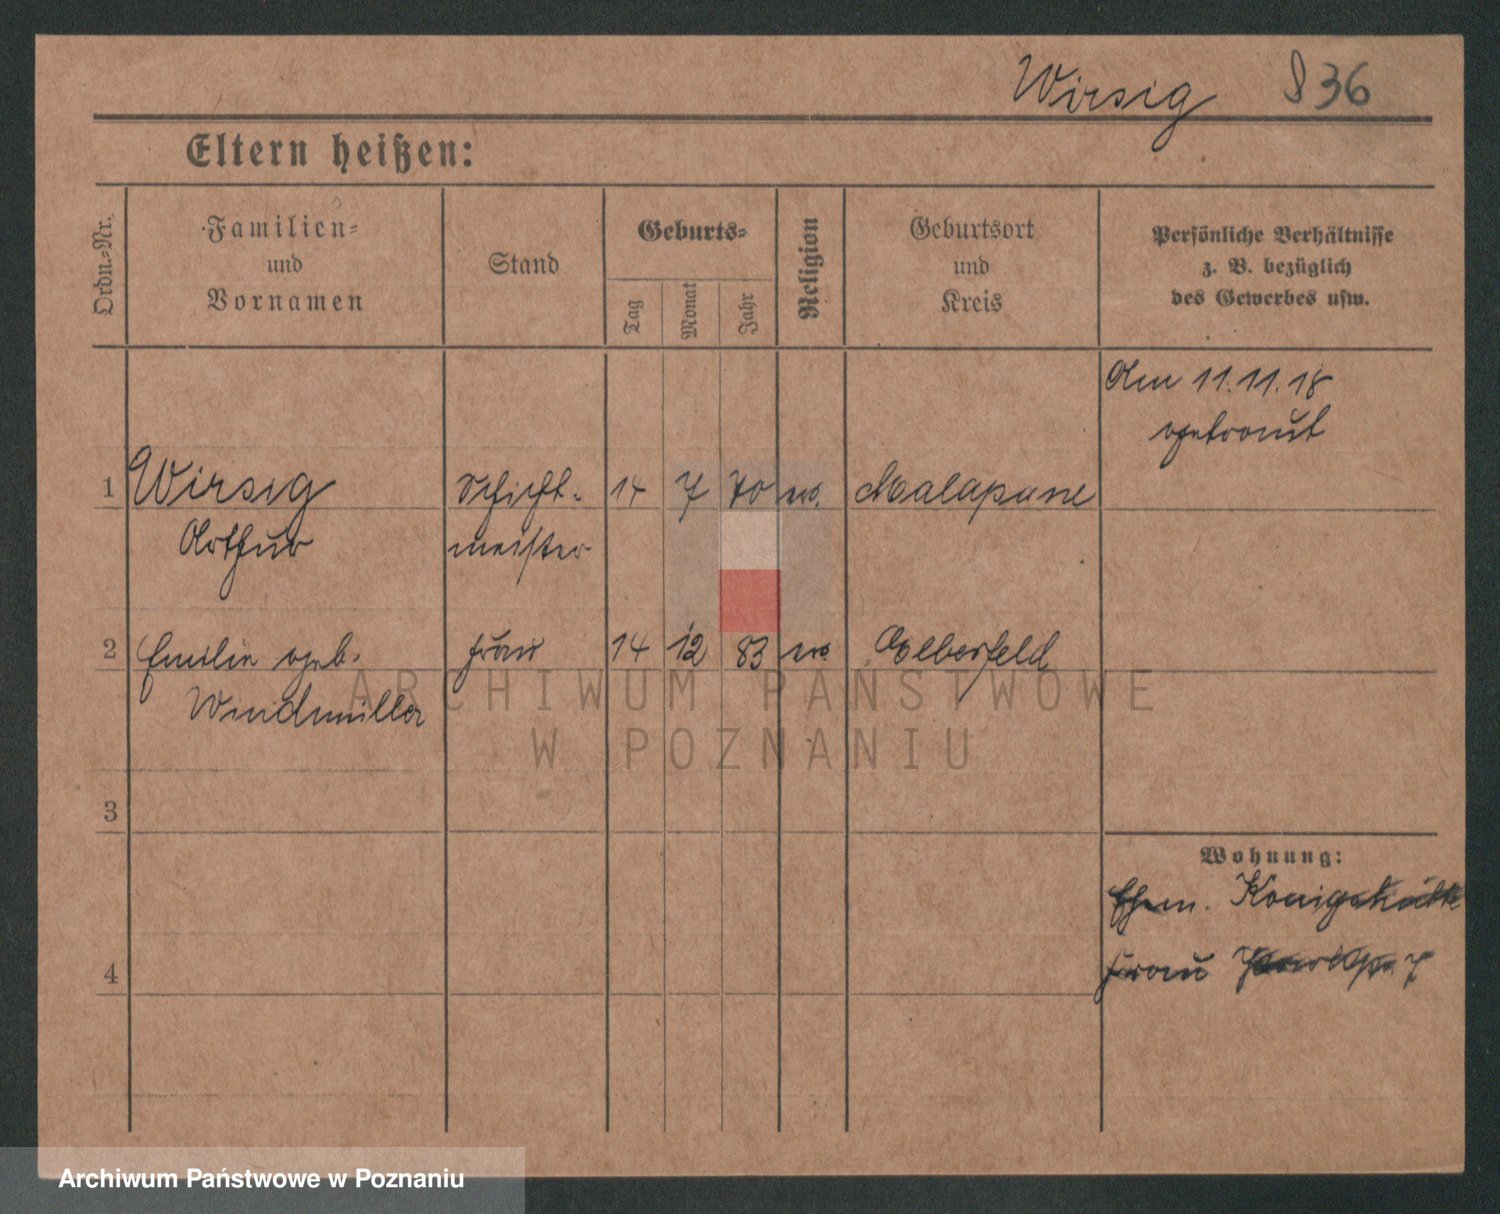 Wirsig 836
Eltern heißen:
Ordn.-Nr.
Familien-
und
Vornamen
Stand
Geburts-
Tag
Monat
Jahr
Religion
Geburtsort
und
Kreis
Persönliche Verhältnisse
z. B. bezüglich
des Gewerbes usw.
Am 11.11.18
getraut
1 Wirsig Schicht- 14 7 70 Malapane
Arthur meister
2 Emilie geb. Frau 14 12 83 Elberfeld
Windmüller
3
4
Wohnung:
Ehem. Königshütte
Frau 7
ARCHIWUM PAŃSTWOWE
W POZNANIU
Archiwum Państwowe w Poznaniu